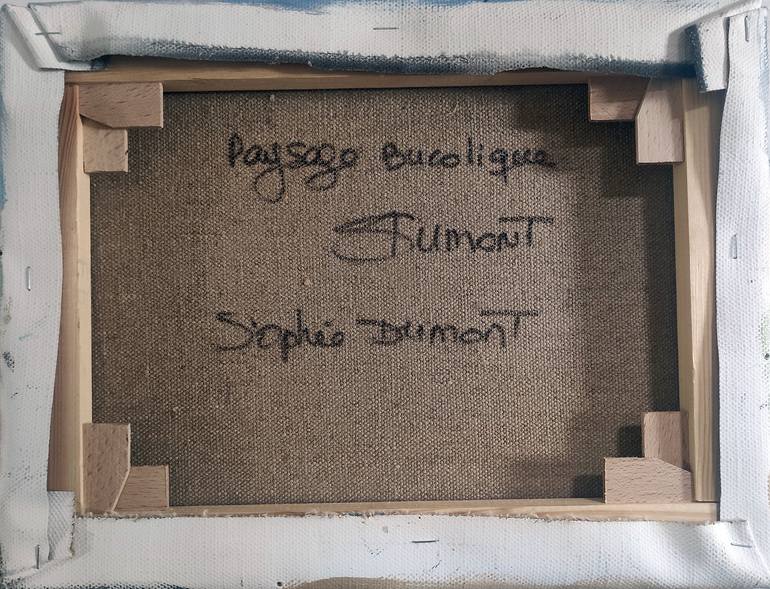 Paysage Bucolique
SDumont
Sophie Dumont